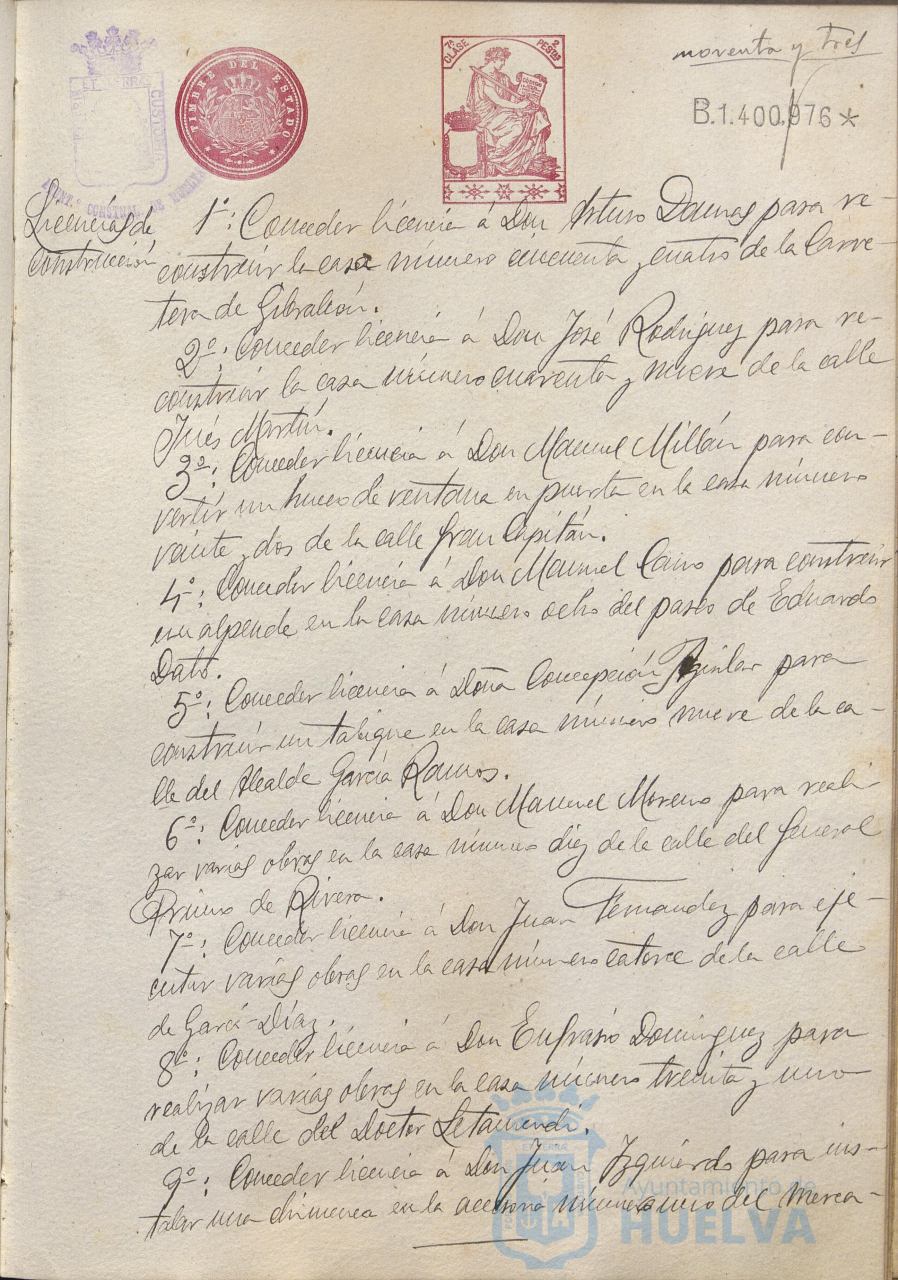 noventa y tres
TIMBRE DEL ESTADO
7ª CLASE
2 PESETAS
B.1.400.976*
Licencias de
construcción
1º: Conceder licencia á Don Arturo Damas para re-
construir la casa número cincuenta y cuatro de la Carre-
tera de Gibraleón.
2º: Conceder licencia á Don José Rodríguez para re-
construir la casa número cuarenta y nueve de la calle
Inés Martín.
3º: Conceder licencia á Don Manuel Millán para con-
vertir un hueco de ventana en puerta en la casa número
veinte y dos de la calle Gran Capitán.
4º: Conceder licencia á Don Manuel Cano para construir
un alpende en la casa número ocho del paseo de Eduardo
Dato.
5º: Conceder licencia á Doña Concepción Aguilar para
construir un tabique en la casa número nueve de la ca-
lle del Alcalde García Ramos.
6º: Conceder licencia á Don Manuel Moreno para reali-
zar varias obras en la casa número diez de la calle del General
Primo de Rivera.
7º: Conceder licencia á Don Juan Fernandez para eje-
cutar varias obras en la casa número catorce de la calle
de Garci-Díaz.
8º: Conceder licencia á Don Eufrasio Dominguez para
realizar varias obras en la casa número treinta y uno
de la calle del Doctor Letamendi.
9º: Conceder licencia á Don Juan Izquierdo para ins-
talar una chimenea en la accesoria número uno del Merca-
Ayuntamiento de
HUELVA